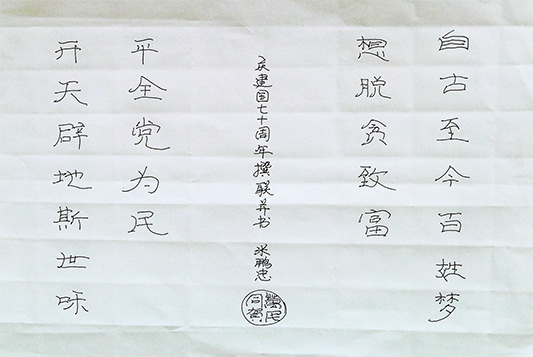 自古至今百姓梦
想脱贫致富
开天辟地斯世咊
平全党为民
庆建国七十周年撰联并书 米鹏忠